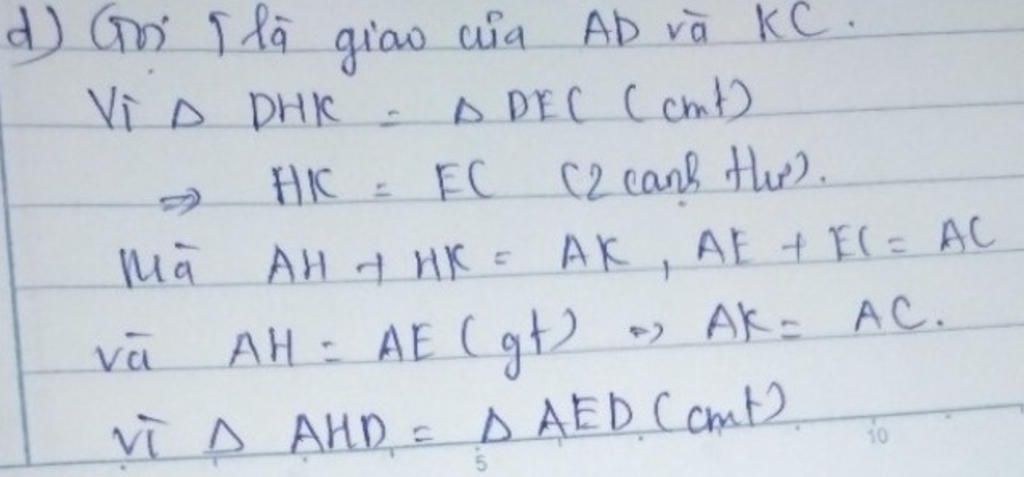 d) Gọi I là giao của AD và KC.
Vì Δ DHK = Δ DEC (cmt)
⇒ HK = EC (2 cạnh tư).
Mà AH + HK = AK, AE + EC = AC
và AH = AE (gt) ⇒ AK = AC.
Vì Δ AHD = Δ AED (cmt)
5
10